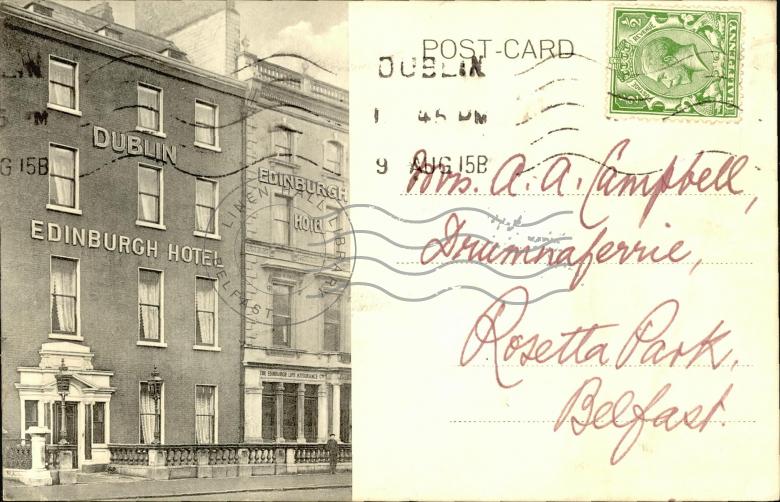 POST-CARD
DUBLIN
1 45 PM
9 AUG 15B
HALFPENNY
Mrs. A. A. Campbell,
Drumnaferrie,
Rosetta Park,
Belfast.
DUBLIN
EDINBURGH HOTEL
EDINBURGH
HOTEL
THE EDINBURGH LIFE ASSURANCE Co
LINEN HALL LIBRARY
BELFAST
LIN
5 PM
G 15B